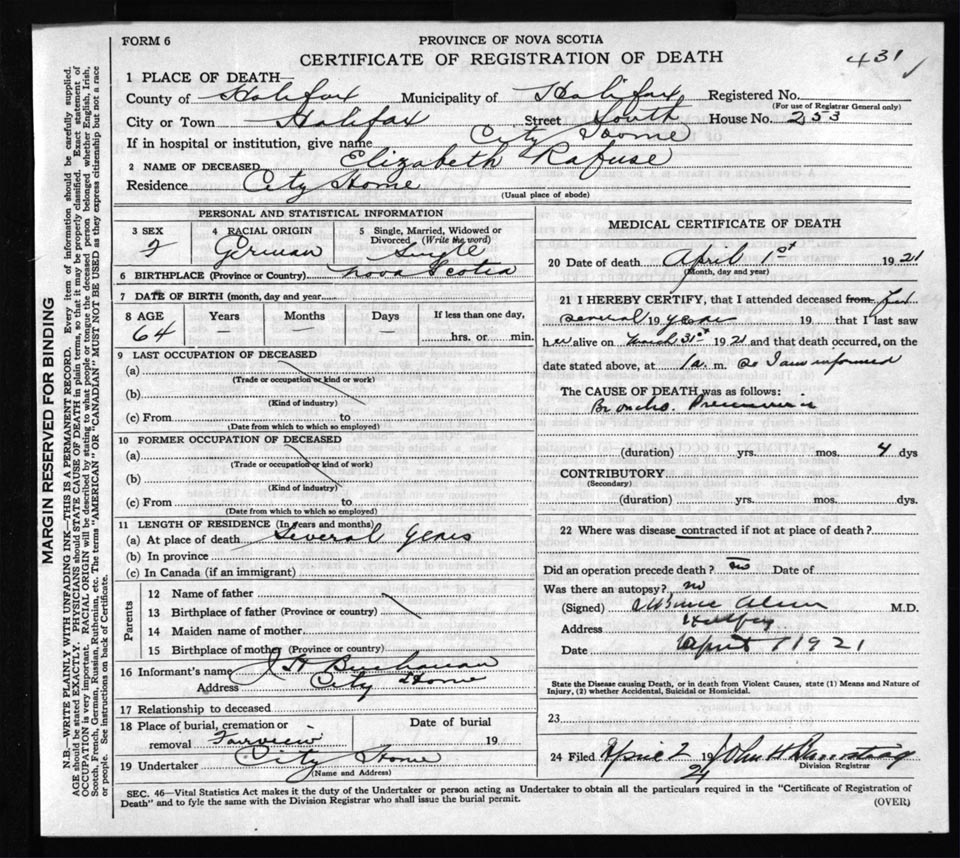 FORM 6
PROVINCE OF NOVA SCOTIA
CERTIFICATE OF REGISTRATION OF DEATH
431
1 PLACE OF DEATH—
County of Halifax Municipality of Halifax Registered No.
(For use of Registrar General only)
City or Town Halifax Street South House No. 253
If in hospital or institution, give name City Home
2 NAME OF DECEASED Elizabeth Rafuse
Residence City Home
(Usual place of abode)
PERSONAL AND STATISTICAL INFORMATION
3 SEX 4 RACIAL ORIGIN 5 Single, Married, Widowed or
Divorced (Write the word)
F German Single
6 BIRTHPLACE (Province or Country) Nova Scotia
7 DATE OF BIRTH (month, day and year)
8 AGE Years Months Days If less than one day,
64 — — — hrs. or min.
9 LAST OCCUPATION OF DECEASED
(a)
(Trade or occupation or kind or work)
(b)
(Kind of industry)
(c) From to
(Date from which to which so employed)
10 FORMER OCCUPATION OF DECEASED
(a)
(Trade or occupation or kind of work)
(b)
(Kind of industry)
(c) From to
(Date from which to which so employed)
11 LENGTH OF RESIDENCE (In years and months)
(a) At place of death Several years
(b) In province
(c) In Canada (if an immigrant)
Parents
12 Name of father
13 Birthplace of father (Province or country)
14 Maiden name of mother
15 Birthplace of mother (Province or country)
16 Informant's name J H Buchanan
Address City Home
17 Relationship to deceased
18 Place of burial, cremation or Date of burial
removal Fairview 19
19 Undertaker City Home
(Name and Address)
MEDICAL CERTIFICATE OF DEATH
20 Date of death April 1st 1921
(Month, day and year)
21 I HEREBY CERTIFY, that I attended deceased from for
several 19 years 19 that I last saw
her alive on March 31st 1921 and that death occurred, on the
date stated above, at 1 a. m. as I am informed
The CAUSE OF DEATH was as follows:
Broncho. Pneumonia
(duration) yrs. mos. 4 dys
CONTRIBUTORY
(Secondary)
(duration) yrs. mos. dys.
22 Where was disease contracted if not at place of death?
Did an operation precede death? no Date of
Was there an autopsy? no
(Signed) M.D.
Address Halifax
Date April 1 1921
State the Disease causing Death, or in death from Violent Causes, state (1) Means and Nature of
Injury, (2) whether Accidental, Suicidal or Homicidal.
23
24 Filed April 2 19 21 John H
Division Registrar
SEC. 46—Vital Statistics Act makes it the duty of the Undertaker or person acting as Undertaker to obtain all the particulars required in the "Certificate of Registration of
Death" and to fyle the same with the Division Registrar who shall issue the burial permit.
(OVER)
MARGIN RESERVED FOR BINDING
N.B.—WRITE PLAINLY WITH UNFADING INK—THIS IS A PERMANENT RECORD. Every item of information should be carefully supplied.
AGE should be stated EXACTLY. PHYSICIANS should STATE CAUSE OF DEATH in plain terms, so that it may be properly classified. Exact statement of
OCCUPATION is very important. RACIAL ORIGIN will be described by stating to what people or tongue the deceased person belonged whether English, Irish,
Scotch, French, German, Russian, Ruthenian, etc. The terms "AMERICAN" or "CANADIAN" MUST NOT BE USED as they express citizenship but not a race
or people. See instructions on back of Certificate.